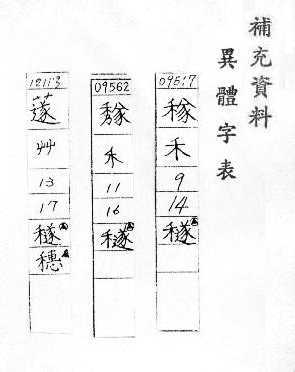 補充資料
異體字表
09517
稼
禾
9
14
穟
09562
禾
11
16
穟
艸
13
17
穟
穗